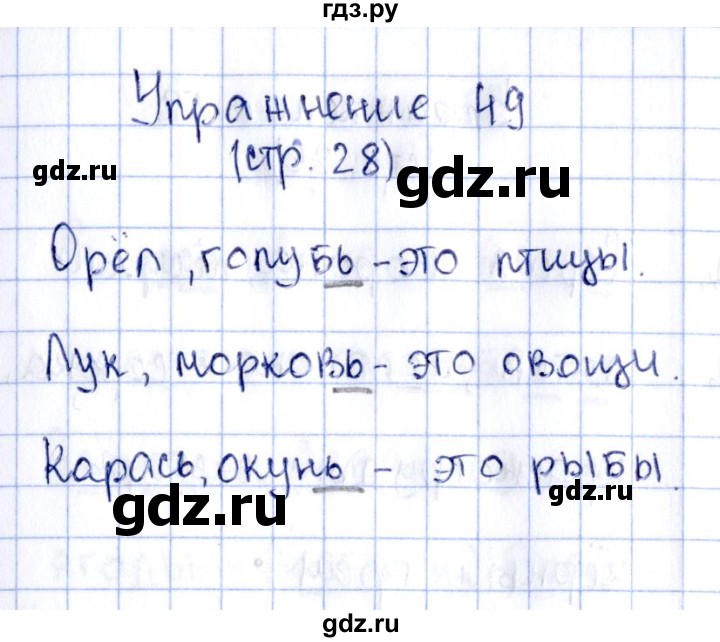 гдз.ру
Упражнение 49
gdz.ru
(стр. 28)
gdz.ru
Орёл, голубь - это птицы.
Лук, морковь - это овощи.
Карась, окунь - это рыбы.
gdz.ru
gdz.ru
gdz.ru